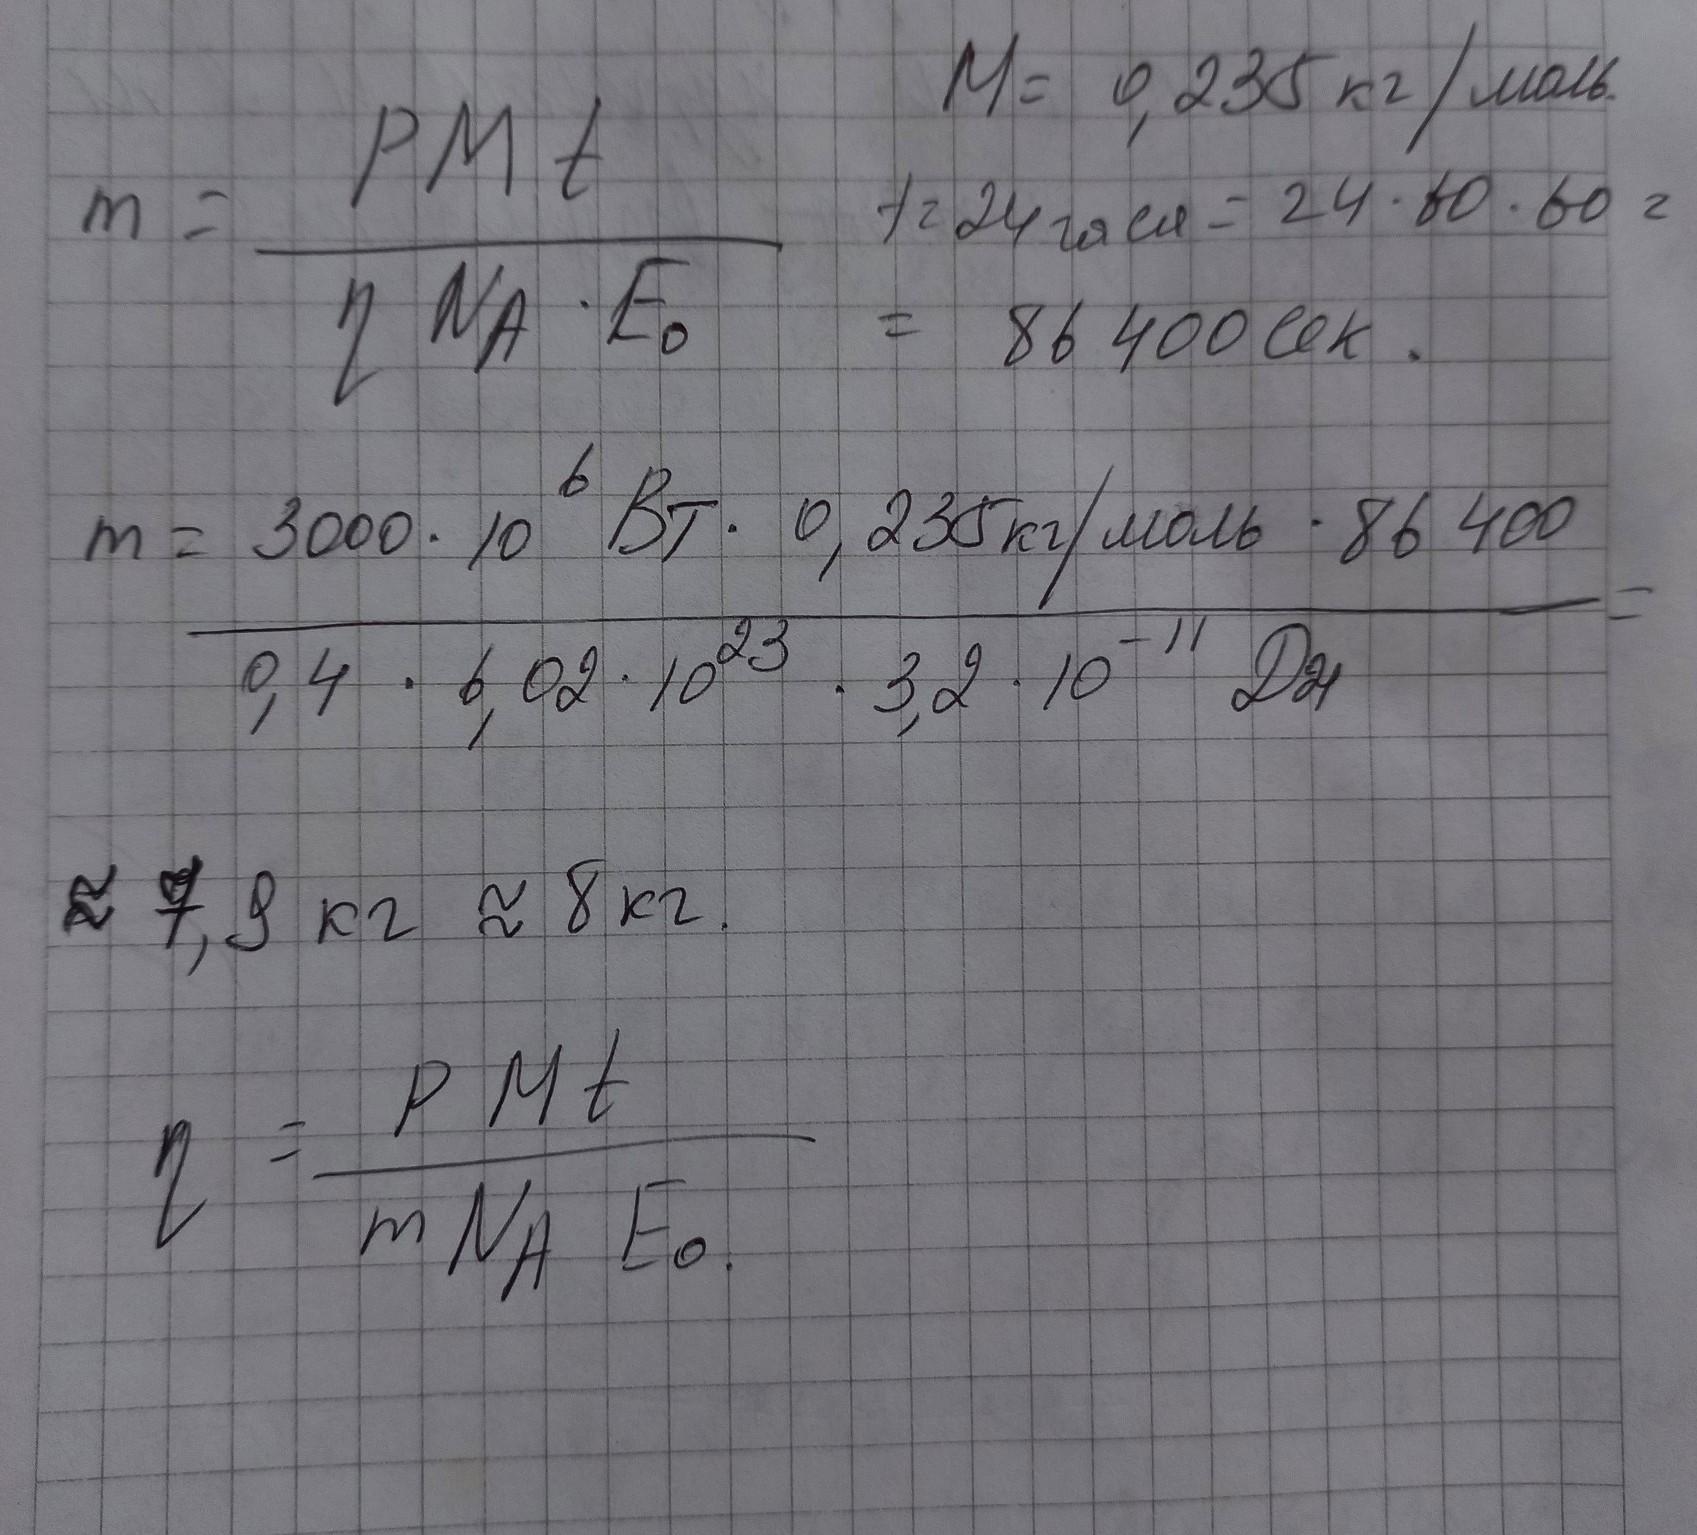 M = 0,235 кг/моль.
m = PMt / η N_A · E₀
t = 24 часа = 24 · 60 · 60 =
= 86 400 сек.
m = 3000 · 10⁶ Вт · 0,235 кг/моль · 86 400 / 0,4 · 6,02 · 10²³ · 3,2 · 10⁻¹¹ Дж =
≈ 7,9 кг ≈ 8 кг.
η = PMt / m N_A E₀.